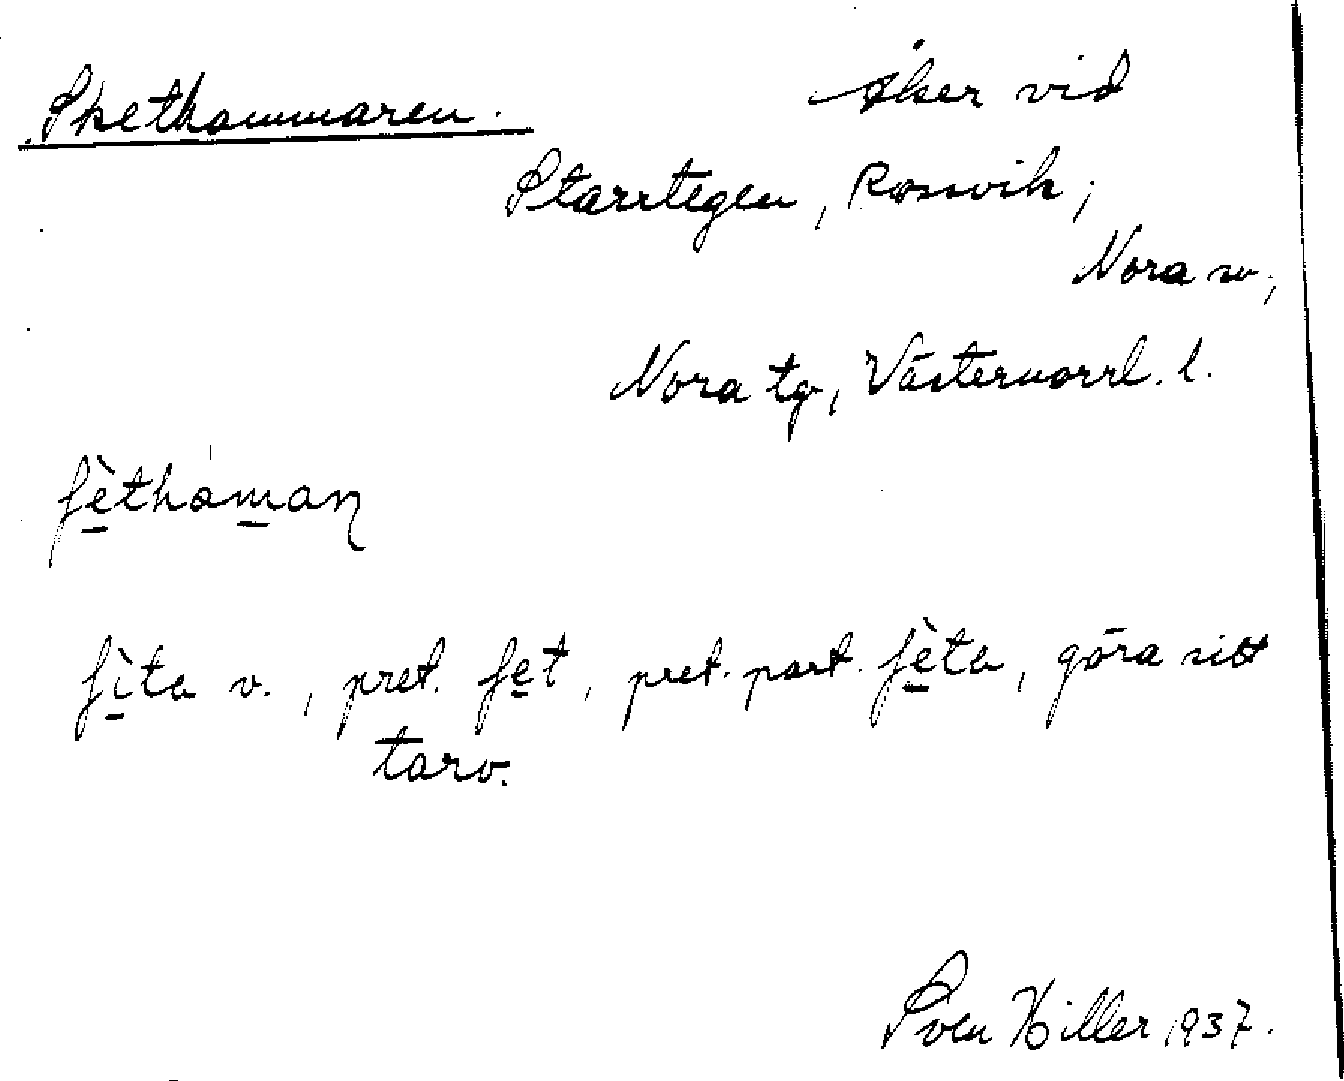 Skethammaren.
Åker vid
Starrtegen, Rossvik,
Nora sn,
Nora tg, Västernorrl. l.
ʃè̱tham̱aɳ
ʃì̱ta v., pret. ʃe̱t, pret. part. ʃè̱ta, göra sitt
tarv.
Sven Hiller 1937.